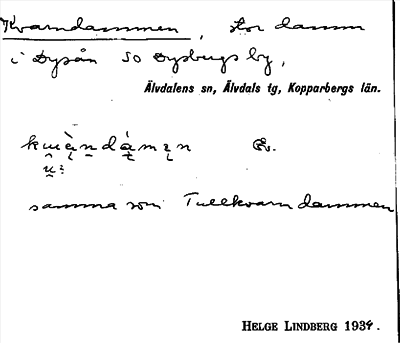 Kvarndammen, stor damm
i Dysån so Dysbergs by,
Älvdalens sn, Älvdals tg, Kopparbergs län.
samma som Tullkvarndammen
HELGE LINDBERG 1934.